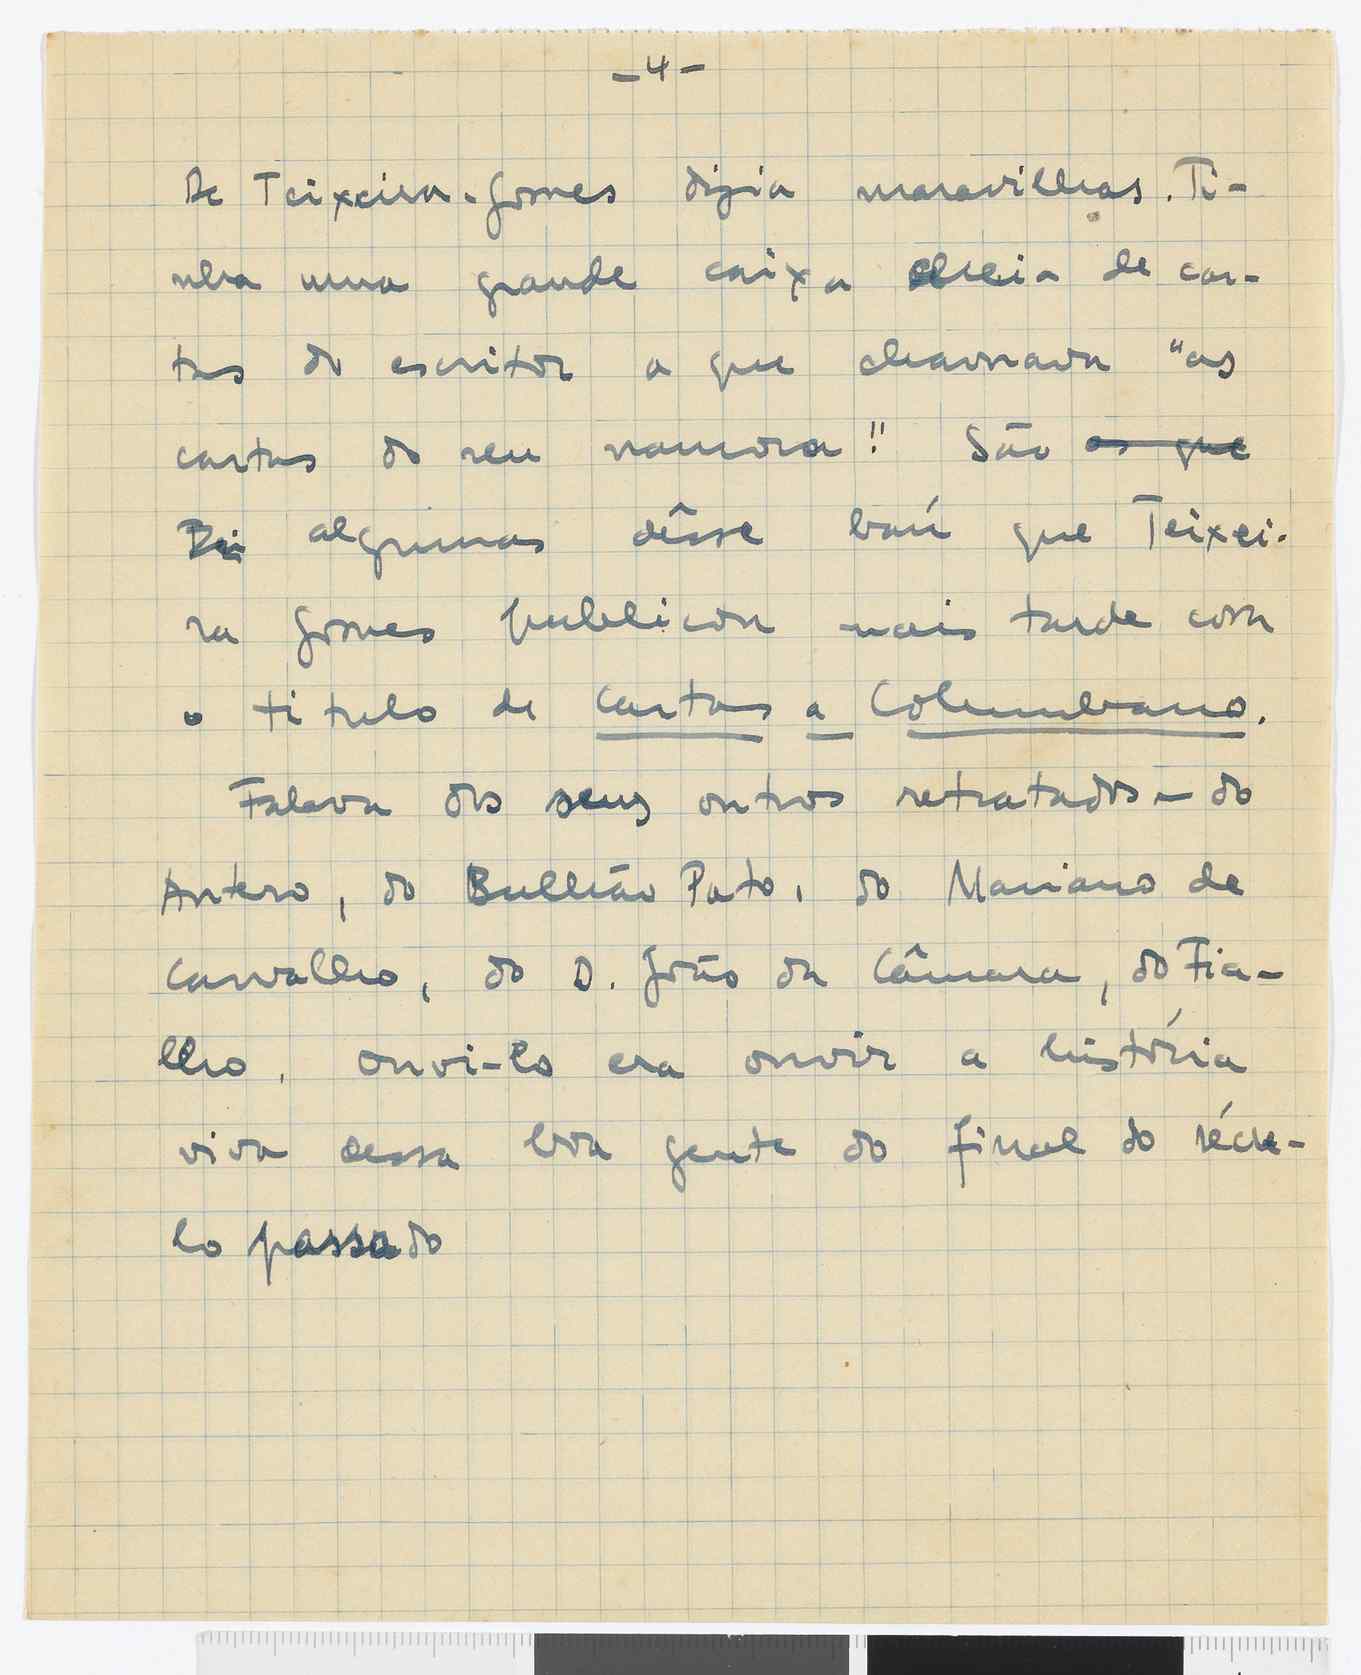 - 4 -
De Teixeira-Gomes dizia maravilhas. Ti-
nha uma grande caixa cheia de car-
tas do escritor a que chamava "as
cartas do seu namoro"! São as que
algumas dêsse baú que Teixei-
ra Gomes publicou mais tarde com
o titulo de Cartas a Columbano.
Falava dos seus outros retratados - do
Antero, do Bulhão Pato, do Mariano de
Carvalho, do D. João da Câmara, do Fia-
lho. Ouvi-lo era ouvir a história
viva dessa boa gente do final do sécu-
lo passado